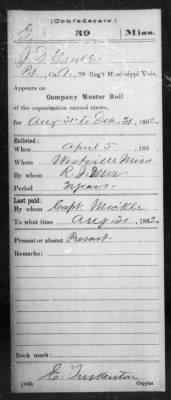 (Confederate.)
39 Miss.
Pvt., Co. , 39 Reg't Mississippi Vols.
Appears on
Company Muster Roll
of the organization named above,
for Aug. 31 to Dec. 31, 1862.
Enlisted:
When April 5, 186
Where Westville Miss
By whom R. J. Durr
Period 3 years.
Last paid:
By whom Capt. Mickle
To what time Aug. 31, 1862.
Present or absent Present
Remarks:
Book mark:
Copyist.